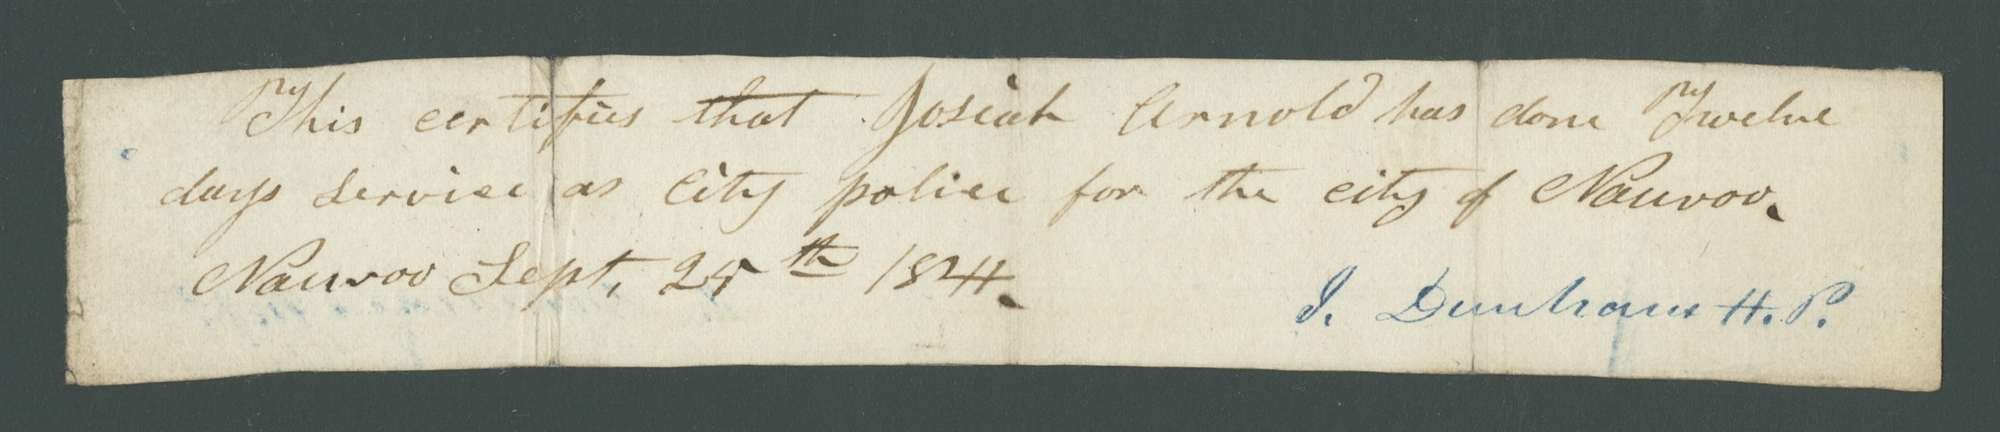 This certifies that Josiah Arnold has done Twelve
days service as City police for the city of Nauvoo.
Nauvoo Sept, 25th 1844.
J. Dunham H. P.